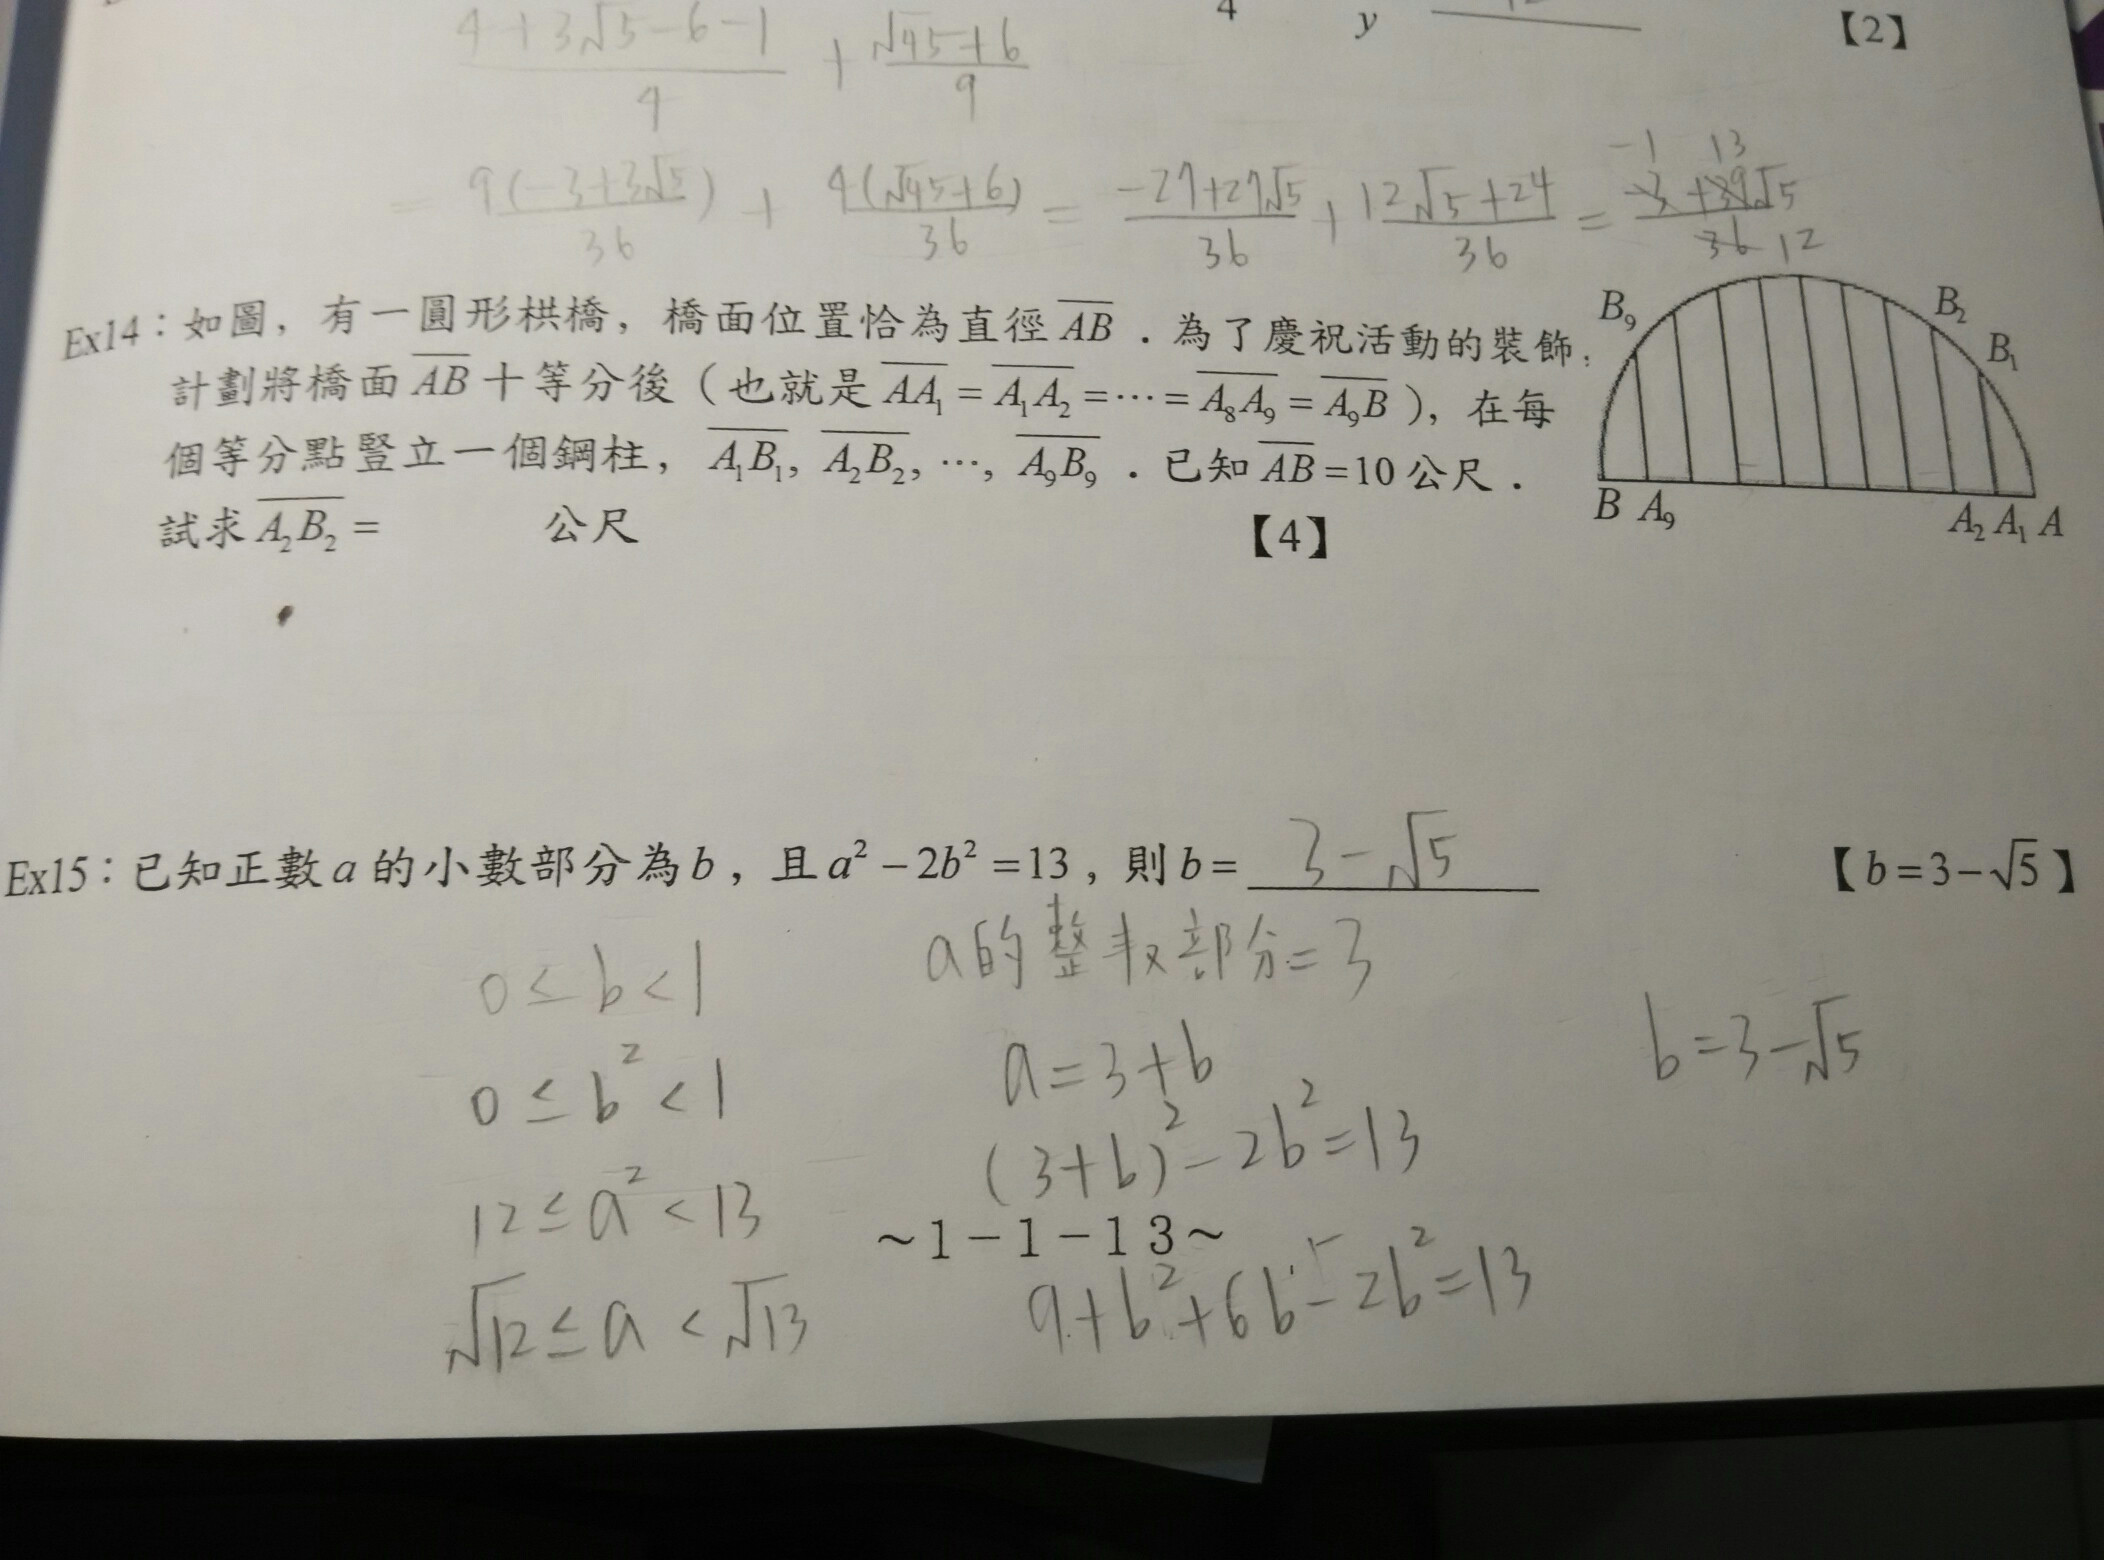 4+3√5-6-1/4 + √45+6/9
4 y 【2】
= 9(-3+3√5)/36 + 4(√45+6)/36 = -27+27√5/36 + 12√5+24/36 = -3+39√5/36 -1 13 12
Ex14：如圖，有一圓形栱橋，橋面位置恰為直徑AB．為了慶祝活動的裝飾，
計劃將橋面AB十等分後（也就是AA₁=A₁A₂=⋯=A₈A₉=A₉B），在每
個等分點豎立一個鋼柱，A₁B₁, A₂B₂, ⋯, A₉B₉．已知AB=10公尺．
試求A₂B₂= 公尺 【4】
B₉ B₂ B₁
B A₉ A₂ A₁ A
Ex15：已知正數a的小數部分為b，且a²-2b²=13，則b= 3-√5 【b=3-√5】
0≤b<1
0≤b²<1
12≤a²<13
√12≤a<√13
a的整数部分=3
a=3+b
(3+b)²-2b²=13
~1-1-13~
9+b²+6b-2b²=13
b=3-√5